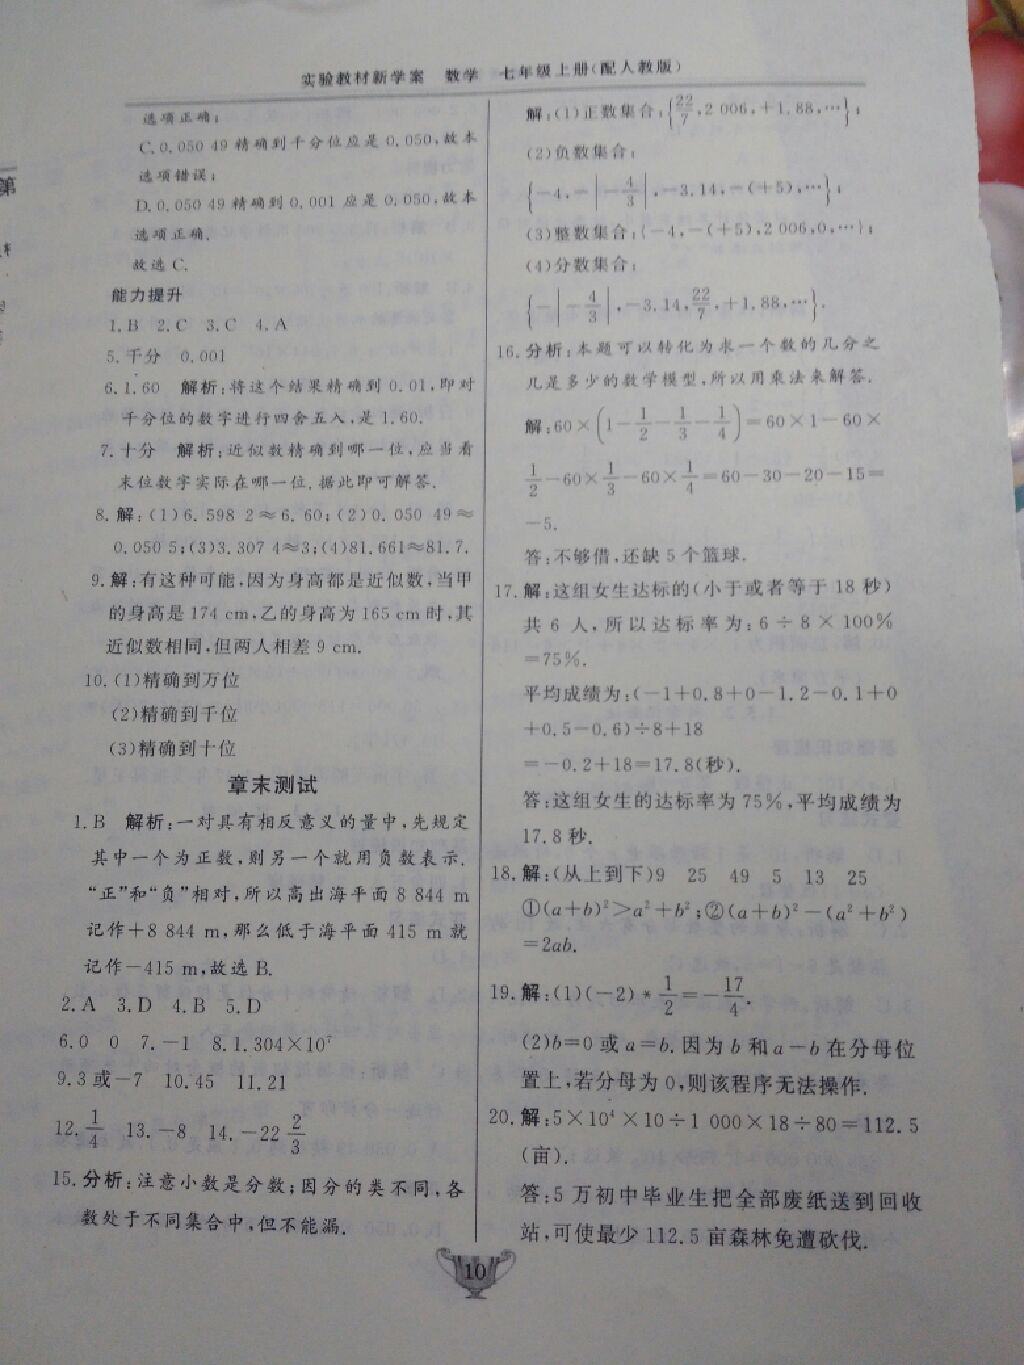 实验教材新学案 数学 七年级上册(配人教版)
选项正确;
C.0.050 49精确到千分位应是0.050,故本
选项错误;
D.0.050 49精确到0.001应是0.050,故本
选项正确.
故选C.
能力提升
1.B 2.C 3.C 4.A
5.千分 0.001
6.1.60 解析:将这个结果精确到0.01,即对
千分位的数字进行四舍五入,是1.60.
7.十分 解析:近似数精确到哪一位,应当看
末位数字实际在哪一位.据此即可解答.
8.解:(1)6.598 2≈6.60;(2)0.050 49≈
0.050 5;(3)3.307 4≈3;(4)81.661≈81.7.
9.解:有这种可能,因为身高都是近似数,当甲
的身高是174 cm,乙的身高为165 cm时,其
近似数相同,但两人相差9 cm.
10.(1)精确到万位
(2)精确到千位
(3)精确到十位
章末测试
1.B 解析:一对具有相反意义的量中,先规定
其中一个为正数,则另一个就用负数表示.
“正”和“负”相对,所以高出海平面8 844 m
记作+8 844 m,那么低于海平面415 m就
记作-415 m,故选B.
2.A 3.D 4.B 5.D
6.0 0 7.-1 8.1.304×10⁷
9.3或-7 10.45 11.21
12.1/4 13.-8 14.-22 2/3
15.分析:注意小数是分数;因分的类不同,各
数处于不同集合中,但不能漏.
解:(1)正数集合:{22/7,2 006,+1.88,…};
(2)负数集合:
{-4,-|-4/3|,-3.14,-(+5),…};
(3)整数集合:{-4,-(+5),2 006,0,…};
(4)分数集合:
{-|-4/3|,-3.14,22/7,+1.88,…}.
16.分析:本题可以转化为求一个数的几分之
几是多少的数学模型,所以用乘法来解答.
解:60×(1-1/2-1/3-1/4)=60×1-60×
1/2-60×1/3-60×1/4=60-30-20-15=
-5.
答:不够借,还缺5个篮球.
17.解:这组女生达标的(小于或者等于18秒)
共6人,所以达标率为:6÷8×100%
=75%.
平均成绩为:(-1+0.8+0-1.2-0.1+0
+0.5-0.6)÷8+18
=-0.2+18=17.8(秒).
答:这组女生的达标率为75%,平均成绩为
17.8秒.
18.解:(从上到下)9 25 49 5 13 25
①(a+b)²>a²+b²;②(a+b)²-(a²+b²)
=2ab.
19.解:(1)(-2)*1/2=-17/4.
(2)b=0或a=b.因为b和a-b在分母位
置上,若分母为0,则该程序无法操作.
20.解:5×10⁴×10÷1 000×18÷80=112.5
(亩).
答:5万初中毕业生把全部废纸送到回收
站,可使最少112.5亩森林免遭砍伐.
10